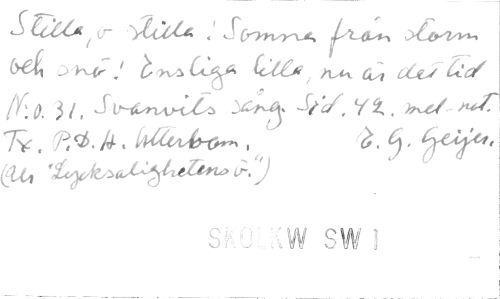 Stilla, o stilla! Somna från storm
och snö! Ensliga lilla, nu är det tid
N:o. 31. Svanvits sång. Sid. 42. mel-not.
Tx. P.D.A. Atterbom. E. G. Geijer.
(Ur "Lycksalighetens ö.")
SKOLKW SW 1